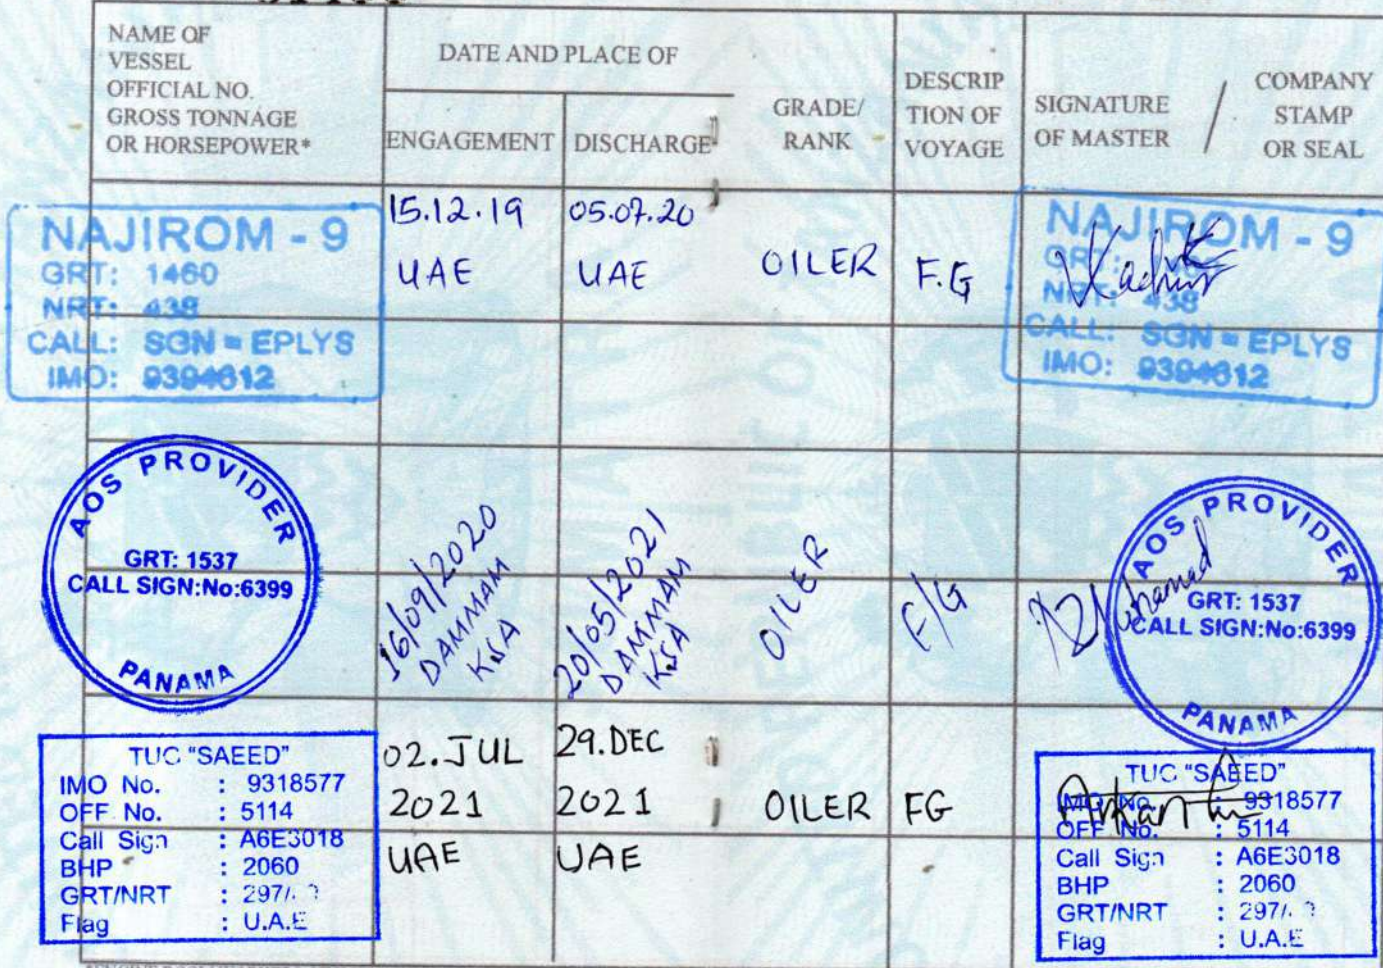 NAME OF
VESSEL
OFFICIAL NO.
GROSS TONNAGE
OR HORSEPOWER*
DATE AND PLACE OF
ENGAGEMENT
DISCHARGE
GRADE/
RANK
DESCRIP
TION OF
VOYAGE
SIGNATURE
OF MASTER
/
COMPANY
STAMP
OR SEAL
NAJIROM - 9
GRT: 1460
NRT: 438
CALL: SGN = EPLYS
IMO: 9394612
15.12.19
UAE
05.07.20
UAE
OILER
F.G
NAJIROM - 9
GRT:
NRT: 438
CALL: SGN = EPLYS
IMO: 9394612
AOS PROVIDER
GRT: 1537
CALL SIGN:No:6399
PANAMA
16/09/2020
DAMMAM
KSA
20/05/2021
DAMMAM
KSA
OILER
F/G
AOS PROVIDER
GRT: 1537
CALL SIGN:No:6399
PANAMA
TUC "SAEED"
IMO No. : 9318577
OFF No. : 5114
Call Sign : A6E3018
BHP : 2060
GRT/NRT : 297/
Flag : U.A.E
02.JUL
2021
UAE
29.DEC
2021
UAE
OILER
FG
TUC "SAEED"
IMO No. : 9318577
OFF No. : 5114
Call Sign : A6E3018
BHP : 2060
GRT/NRT : 297/
Flag : U.A.E